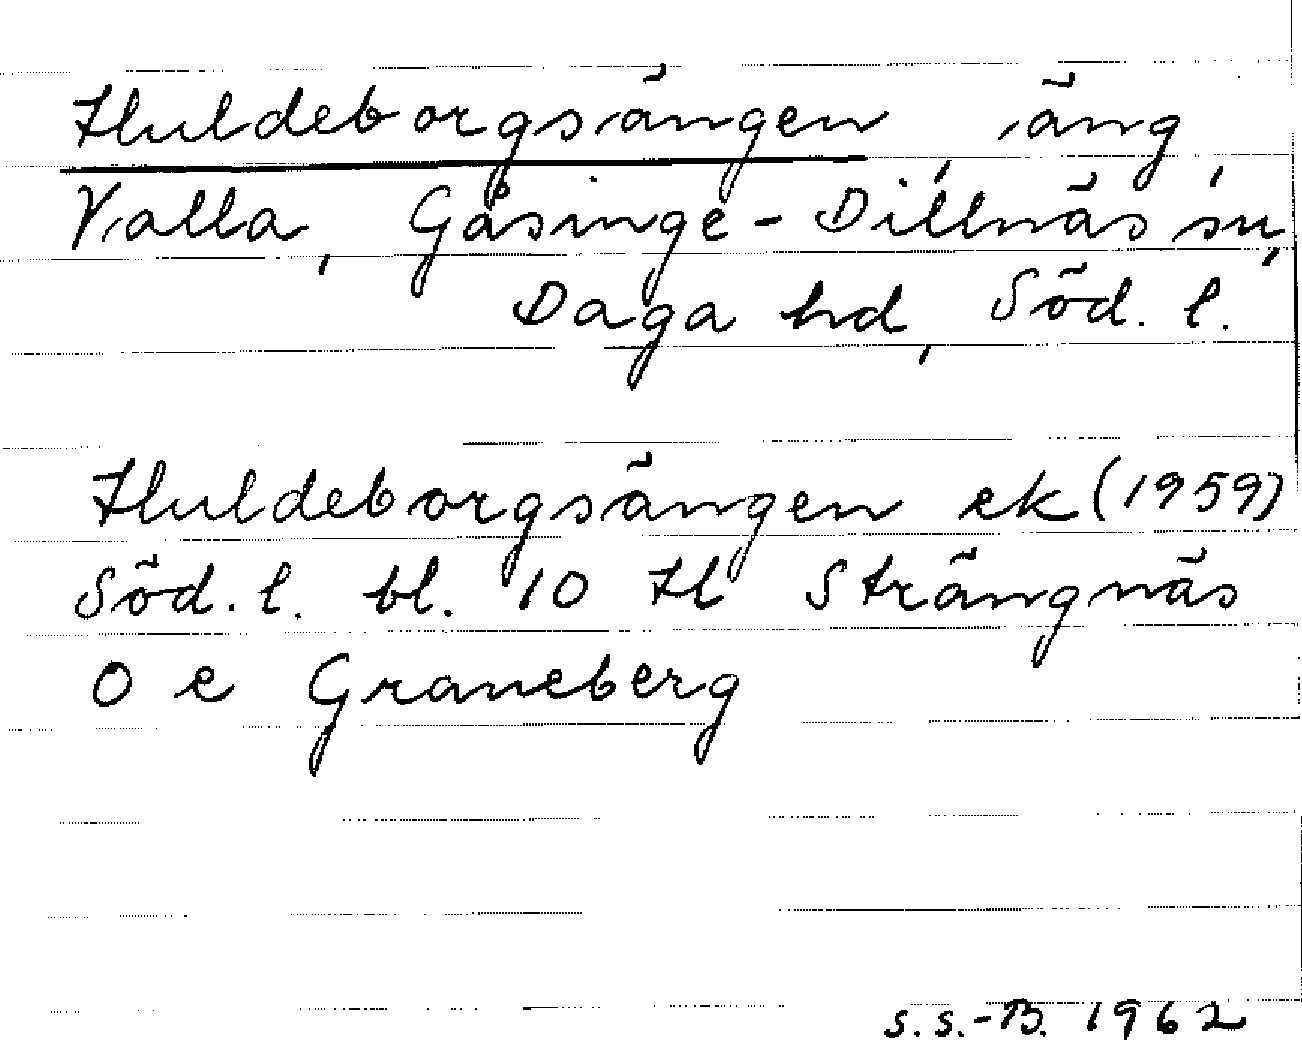 Huldeborgsängen, äng,
Valla, Gåsinge-Dillnäs sn,
Daga hd, Söd. l.
Huldeborgsängen ek (1959)
Söd. l. bl. 10 H Strängnäs
O e Graneberg
S.S.-B. 1962